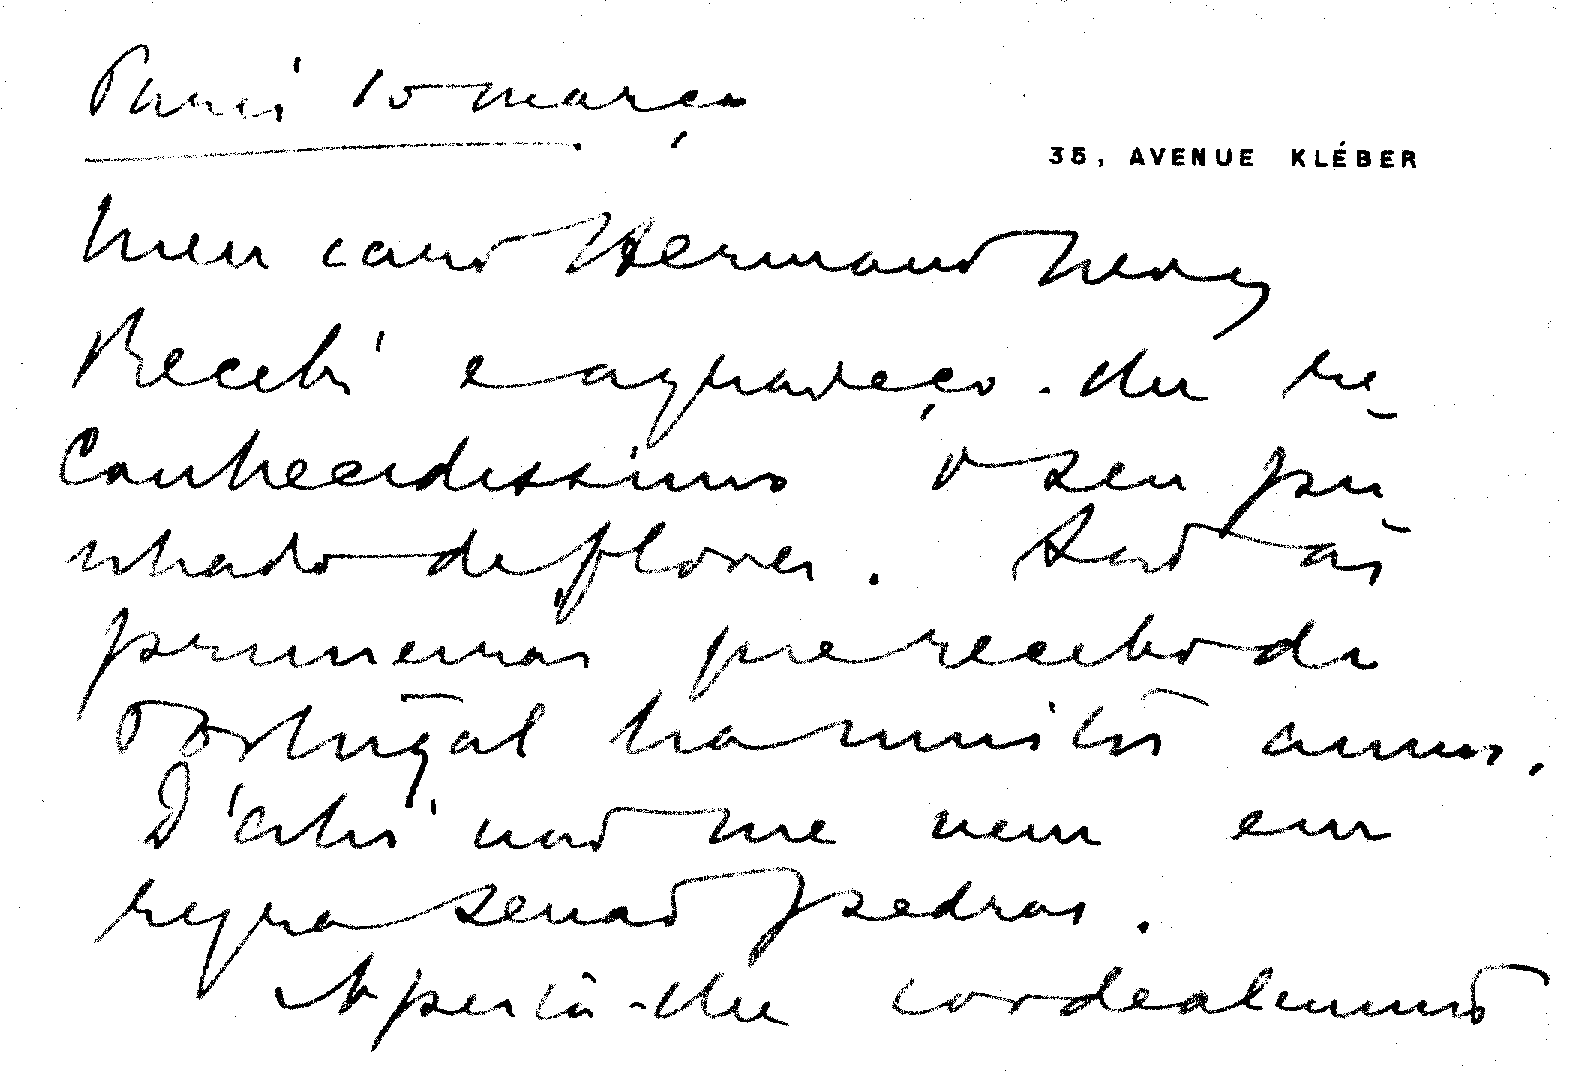 Paris 10 março
35, AVENUE KLÉBER
Meu caro Hermano Neves
Recebi e agradeço-lhe re-
conhecidissimo o seu pu-
nhado de flores. São as
primeiras que recebo de
Portugal ha muitos annos.
D'ahi não me vem em
regra senão pedras.
Aperta-lhe cordealmente